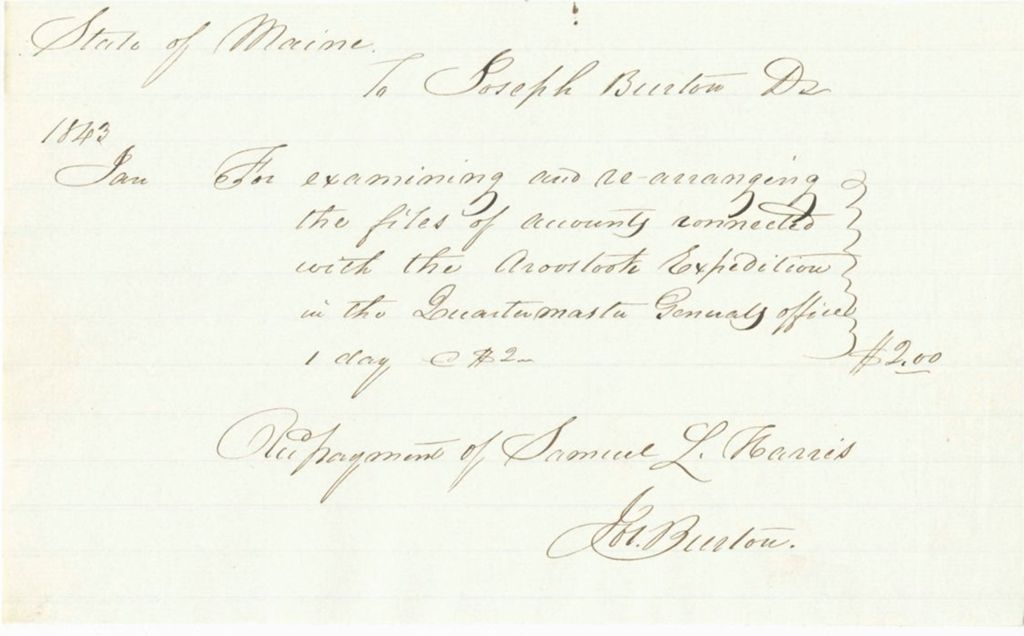 State of Maine.
To Joseph Burton Dr
1843
Jan For examining and re-arranging
the files of accounts connected
with the Aroostook Expedition
in the Quartermaster Generals office
1 day @ $2- $2.00
Recd payment of Samuel L. Harris
Jos. Burton.